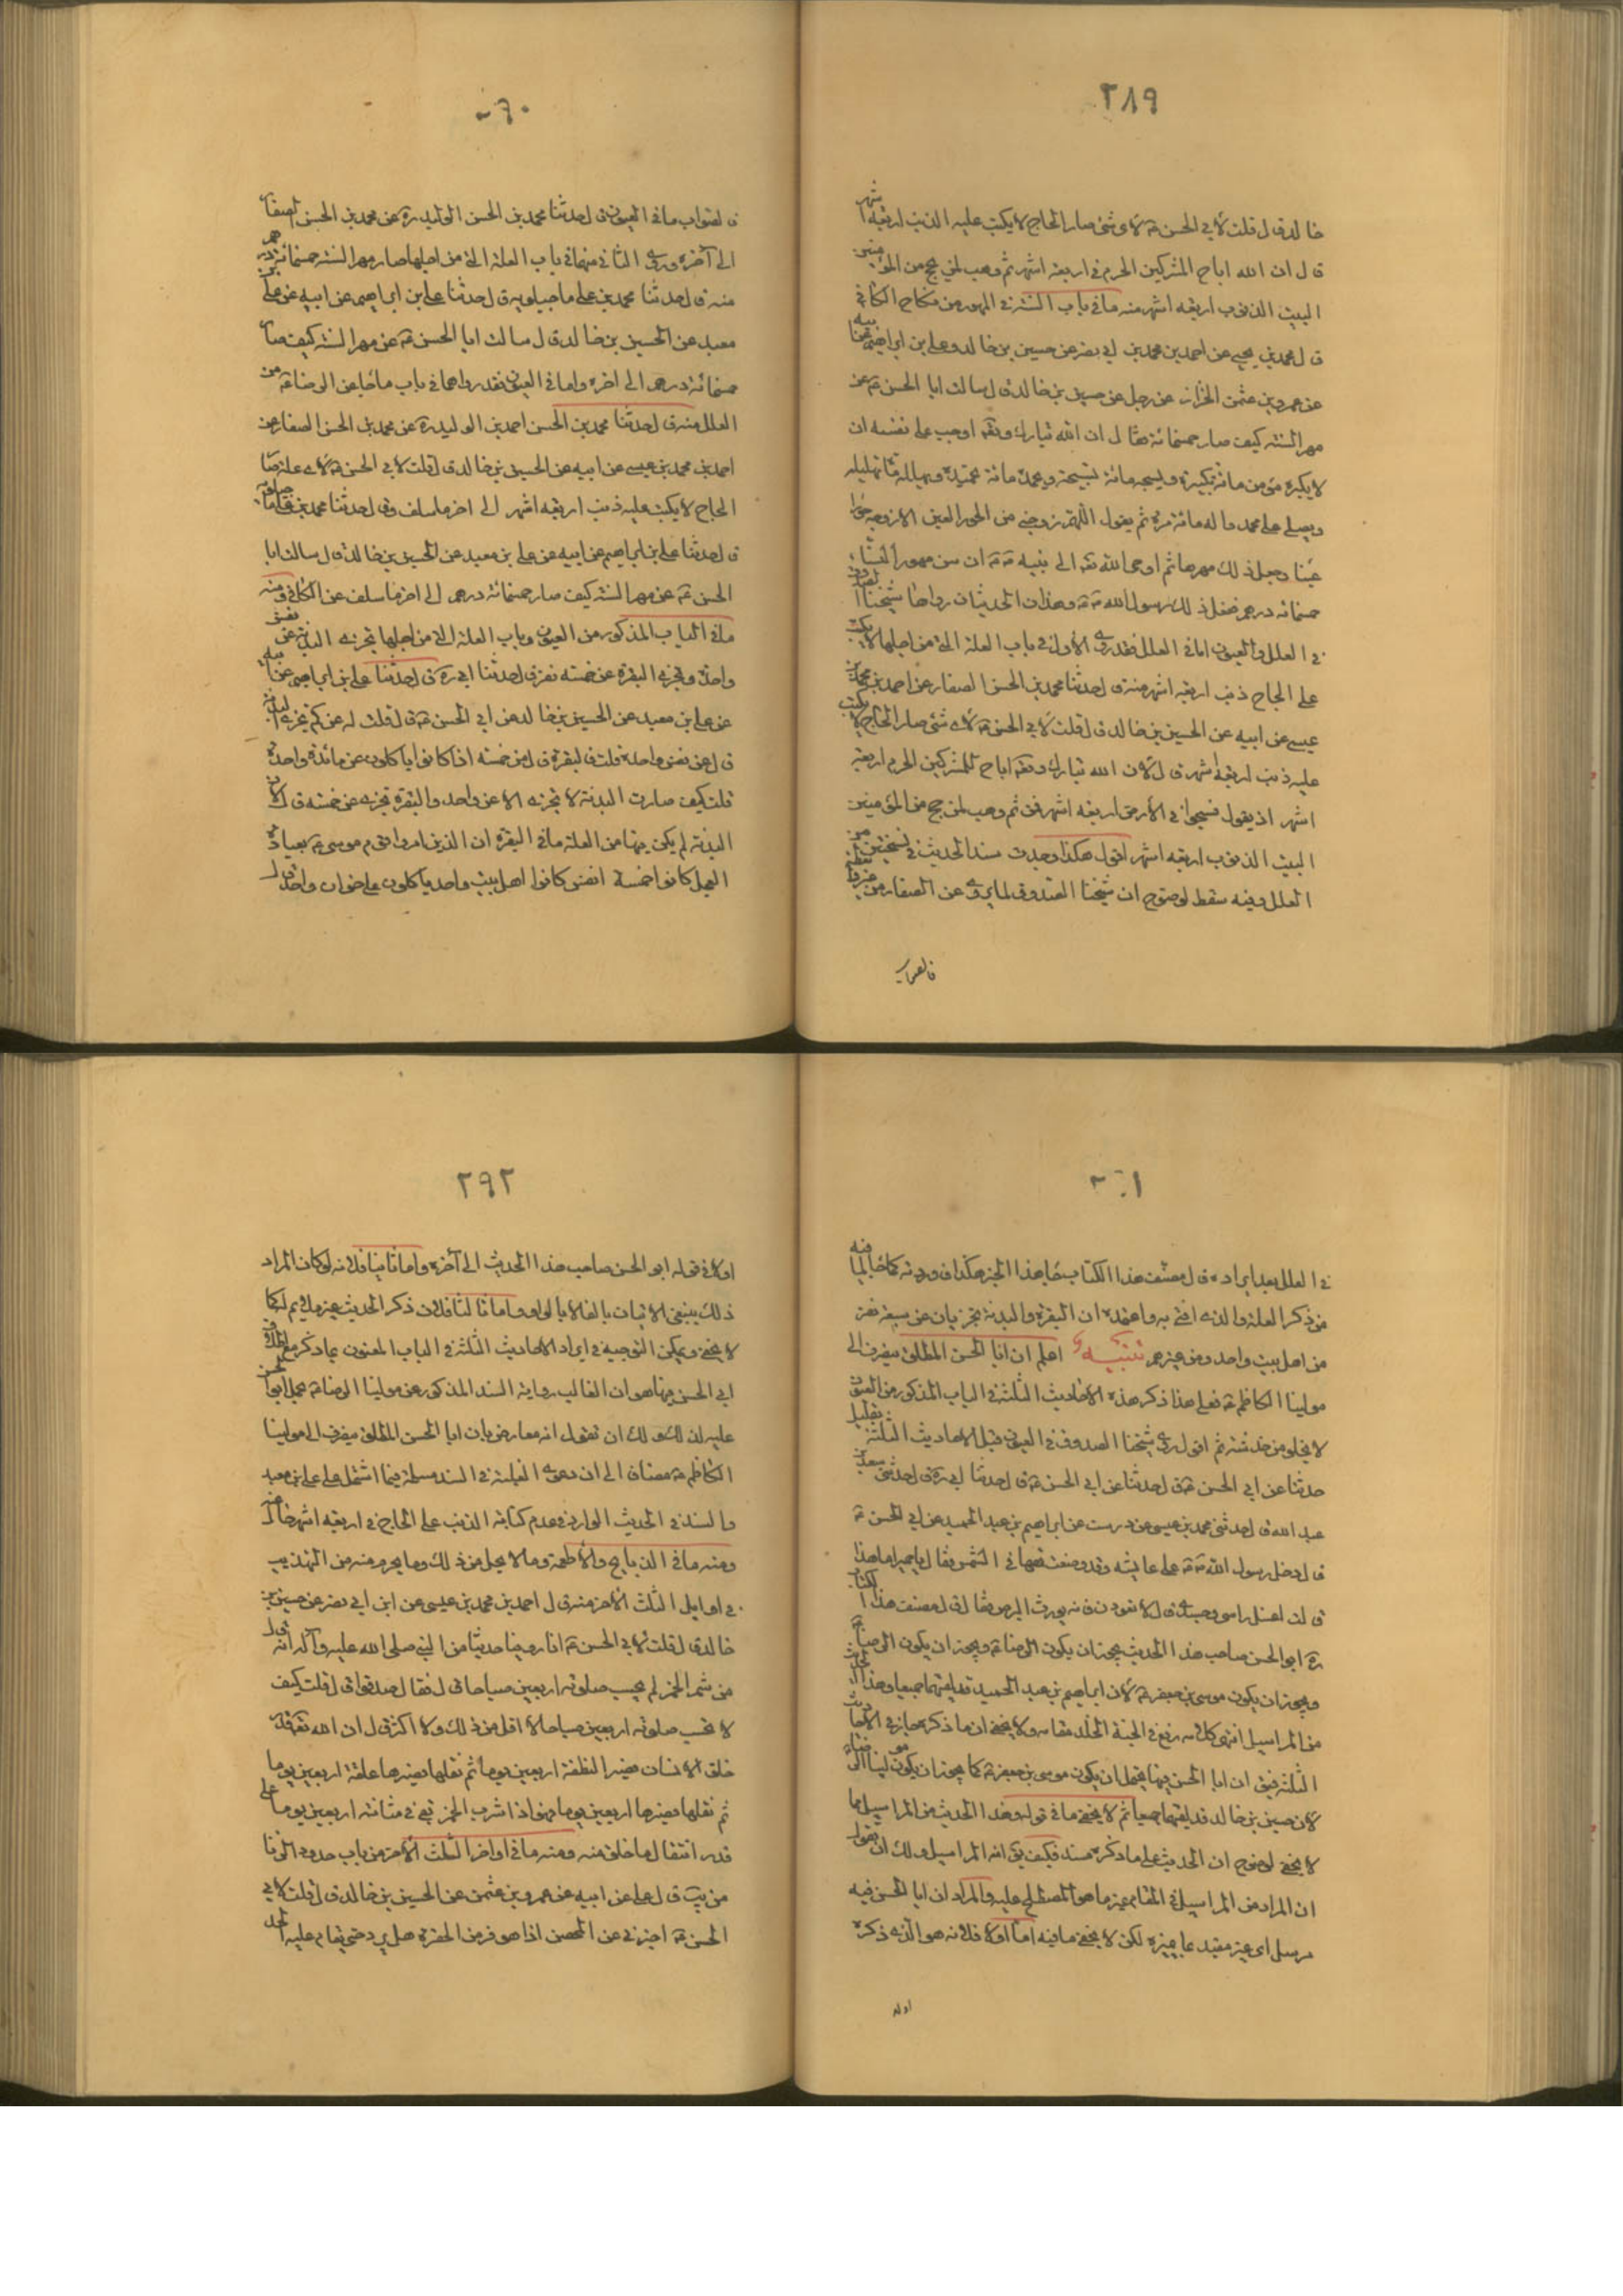 ٢٨٩
خالد قال قلت لأبي الحسن ع لأي شئ صار الحاج لا يكتب عليه الذنب اربعة اشهر
قال ان الله اباح المشركين الحرم في اربعة اشهر ثم وهب لمن يحج من المؤمنين
البيت الذنوب اربعه اشهر منه ما في باب السنة في المهور من نكاح الكافي
قال محمد بن يحيى عن احمد بن محمد بن ابي نصر عن حسين بن خالد وعلي بن ابراهيم عن ابيه
عن عمرو بن عثمن الخزاز عن رجل عن حسين بن خالد قال سالت ابا الحسن ع عن
مهر السنه كيف صار خمسمائة فقال ان الله تبارك وتعه اوجب على نفسه ان
لا يكبره مؤمن مائة تكبيرة ويسبحه مائة تسبيحة ويحمده مائة تحميدة ويهلله مائة تهليله
ويصلي على محمد واله مائة مرة ثم يقول اللهم زوجني من الحور العين الا زوجه حوراء
عينا وجعل ذلك مهرها ثم اوحى الله تعه الى نبيه ص ان سن مهور النساء
خمسمائه درهم ففعل ذلك رسول الله ص وهذان الحديثان رواهما شيخنا الصدوق
في العلل والعيون اما في العلل فقد روى الأول في باب العلة التي من اجلها لا يكتب
على الحاج ذنب اربعه اشهر منه قال حدثنا محمد بن الحسن الصفار عن احمد بن محمد بن
عيسى عن ابيه عن الحسين بن خالد قال قلت لأبي الحسن ع لأي شئ صار الحاج لا يكتب
عليه ذنب اربعة اشهر قال لأن الله تبارك وتعه اباح للمشركين الحرم اربعة
اشهر اذ يقول فسيحوا في الأرض اربعة اشهر فمن ثم وهب لمن حج من المؤمنين
البيت الذنوب اربعه اشهر اقول هكذا وجدت سند الحديث في نسختين من
العلل وفيه سقط لوضوح ان شيخنا الصدوق لما يروي عن الصفار من
فالصواب
٢٩٠
فالصواب ما في العيون قال حدثنا محمد بن الحسن الوليد ره عن محمد بن الحسن الصفار
الى آخره وروى الثاني منهما في باب العلة التي من اجلها صار مهر السنه خمسمائة درهم
منه قال حدثنا محمد بن علي ماجيلويه قال حدثنا علي بن ابراهيم عن ابيه عن علي بن
معبد عن الحسين بن خالد قال سالت ابا الحسن ع عن مهر السنه كيف صار
خمسمائة درهم الى اخره واما في العيون فقد رواهما في باب ما جاء عن الرضا ع من
العلل منه قال حدثنا محمد بن الحسن احمد بن الوليد ره عن محمد بن الحسن الصفار عن
احمد بن محمد بن عيسى عن ابيه عن الحسين بن خالد قال قلت لابي الحسن ع لأي علة صار
الحاج لا يكتب عليه ذنب اربعه اشهر الى اخر ما سلف وقال حدثنا محمد بن علي ماجيلويه
قال حدثنا علي بن ابراهيم عن ابيه عن علي بن معبد عن الحسين بن خالد قال سالت ابا
الحسن ع عن مهر السنه كيف صار خمسمائة درهم الى اخر ما سلف عن الكافي ومنه
ما في الباب المذكور من العيون وباب العلة التي من اجلها تجزى البدنة عن نفس
واحدة وتجزى البقرة عن خمسه نفر قال حدثنا ابي ره قال حدثنا علي بن ابراهيم عن ابيه
عن علي بن معبد عن الحسين بن خالد عن ابي الحسن ع قال قلت له عن كم تجزى البدنة
قال عن نفس واحدة قلت فالبقرة قال عن خمسه اذا كانوا يأكلون عن مائدة واحدة
قلت كيف صارت البدنة لا تجزى الا عن واحد والبقرة تجزى عن خمسه قال لأن
البدنة لم يكن فيها من العلة ما في البقره ان الذين امروا قوم موسى ع بعبادة
العجل كانوا خمسة انفس كانوا اهل بيت واحد يأكلون على خوان واحد
٢٩١
في العلل بعد ايراده قال مصنف هذا الكتاب جاء هذا الخبر هكذا فاوردته كما جاء لما فيه
من ذكر العلة والذي افتي به واعتمده ان البقرة والبدنة تجزيان عن سبعة نفر
من اهل بيت واحد ومن غيرهم تنبيه اعلم ان ابا الحسن المطلق ينصرف الى
مولينا الكاظم ع فعلى هذا ذكر هذه الأحاديث الثلثة في الباب المذكور من العيون
لا يخلو من خدشة ثم اقول روى شيخنا الصدوق في العيون قبل الاحاديث الثلثة بقليل
حدثنا عن ابي الحسن ع قال حدثنا عن ابي الحسن ع قال حدثنا ابي ره قال حدثني سعد بن
عبد الله قال حدثني محمد بن عيسى عن درست عن ابراهيم بن عبد الحميد عن ابي الحسن ع
قال دخل رسول الله ص على عايشه وقد وضعت قمقمها في الشمس فقال يا حميرا ما هذا
قالت اغسل راسي وجسدي قال لا تعودي فانه يورث البرص فقال قال مصنف هذا الكتاب
ره ابو الحسن صاحب هذا الحديث يجوز ان يكون الرضا ع ويجوز ان يكون
ويجوز ان يكون موسى بن جعفر ع لأن ابراهيم بن عبد الحميد قد لقيهما جميعا وهذا الحديث
من المراسيل انتهى كلامه رفع في الجنة الخلد مقامه ولا يخفى ان ما ذكره جاز في الأحاديث
الثلثة فيق ان ابا الحسن فيها يحتمل ان يكون موسى بن جعفر ع كما يجوز ان يكون مولينا الرضا ع
لان حسين بن خالد قد لقيهما جميعا ثم لا يخفى ما في قوله وهذا الحديث من المراسيل مما
لا يخفى لوضوح ان الحديث على ما ذكره مسند فكيف يق انه المراسيل ولك ان تقول
ان المراد من المراسيل في المقام غير ما هو المصطلح عليه والمراد ان ابا الحسن فيه
مرسل اي غير مقيد بما يميزه لكن لا يخفى ما فيه اما اولا فلانه هو الذي ذكره
اولا
٢٩٢
اولا في قوله ابو الحسن صاحب هذا الحديث الى آخره واما ثانيا فلانه لو كان المراد
ذلك ينبغي الاتيان بالفاء لا بالواو واما ثالثا فلان ذكر الحديث غير ملائم كما
لا يخفى ويمكن التوجيه في ايراد الاحاديث الثلثة في الباب المعنون بما ذكر مع اطلاق
ابي الحسن فيها هو ان الغالب رواية السند المذكور عن مولينا الرضا ع يحمل ابو الحسن
عليه لذلك ولك ان تقول انه معارض بان ابا الحسن المطلق ينصرف الى مولينا
الكاظم ع مضافا الى ان دعوى الغلبة في السند مسلمة فيما اشتمل على علي بن معبد
والسند في الحديث الوارد في عدم كتابة الذنب على الحاج في اربعة اشهر خال عنه
ومنه ما في الذبايح والأطعمة وما لا يحل من ذلك وما يحرم منه من التهذيب
في اوايل الثلث الأخر منه قال احمد بن محمد بن عيسى عن ابن ابي نصر عن حسين بن
خالد قال قلت لابي الحسن ع انا روينا حديثا من النبي صلى الله عليه وآله انه قال
من شرب الخمر لم يحسب صلوته اربعين صباحا قال فقال صدقوا قال قلت كيف
لا تحسب صلوته اربعين صباحا لا اقل من ذلك ولا اكثر قال ان الله تعه قدر
خلق الانسان فصير النطفة اربعين يوما ثم نقلها فصيرها علقة اربعين يوما
ثم نقلها فصيرها اربعين يوما فهو اذا شرب الخمر بقي في مثانته اربعين يوما على
قدر انتقال ما خلق منه ومنه ما في اواخر الثلث الأخر من باب حدود الزنا
من يب قال علي عن ابيه عن عمرو بن عثمن عن الحسين بن خالد قال قلت لابي
الحسن ع اخبرني عن المحصن اذا هو فر من الحفرة هل يرد حتى يقام عليه الحد